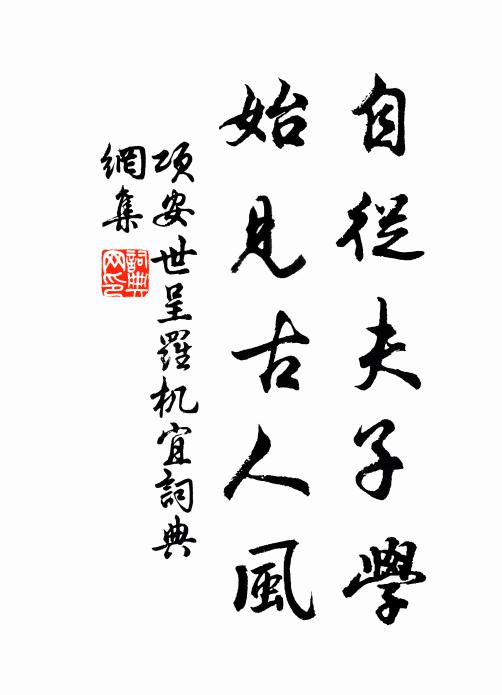 自從夫子學
始見古人風
項安世呈羅机宜詞典
網集
詞典
网印